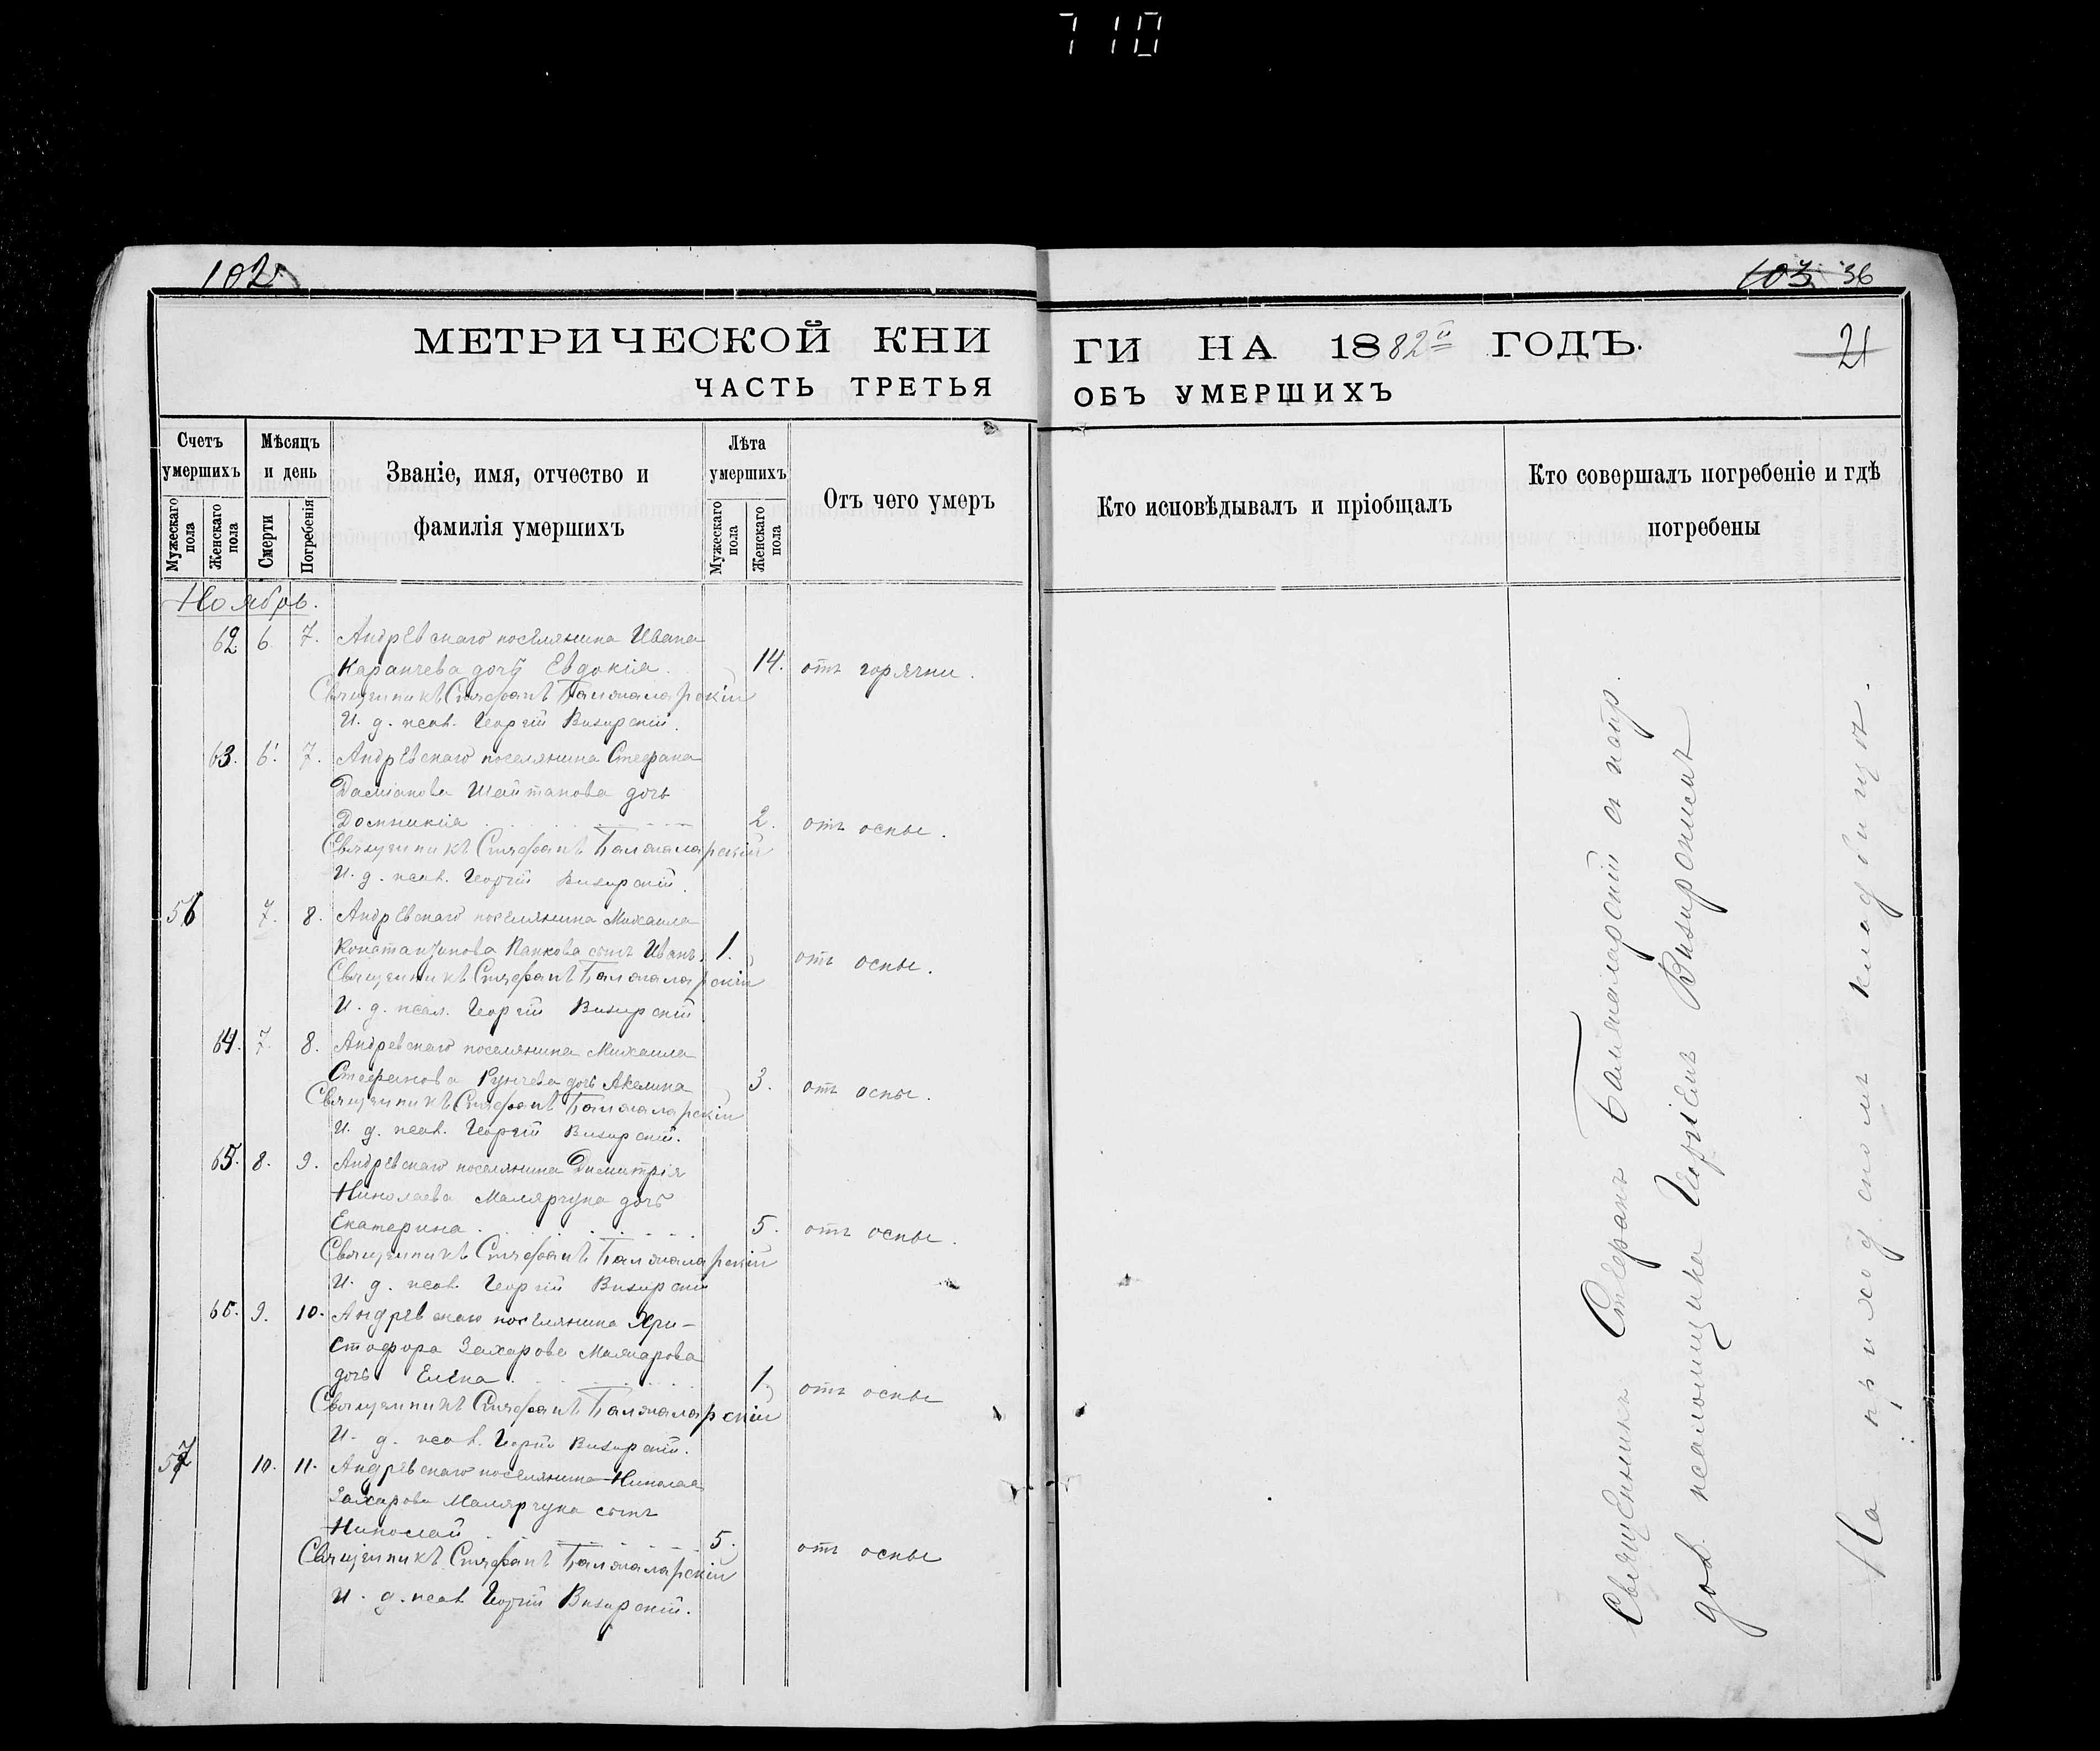 710
102.
103 36
МЕТРИЧЕСКОЙ КНИ
ГИ НА 1882й ГОДЪ.
21
ЧАСТЬ ТРЕТЬЯ
ОБЪ УМЕРШИХЪ
Счетъ умершихъ
Мужескаго пола
Женскаго пола
Мѣсяцъ и день
Смерти
Погребенія
Званіе, имя, отчество и
фамилія умершихъ
Лѣта умершихъ
Мужескаго пола
Женскаго пола
Отъ чего умеръ
Кто исповѣдывалъ и пріобщалъ
Кто совершалъ погребеніе и гдѣ
погребены
Ноябрь.
62 6 7. Андреевскаго поселянина Ивана
Карапчева дочь Евдокія. 14. отъ горячки.
Священникъ Стефанъ Балжаларскій
И. д. псал. Георгій Визирскій.
63. 6. 7. Андреевскаго поселянина Стефана
Даміанова Шайтанова дочь
Домникія 2. отъ оспы.
Священникъ Стефанъ Балжаларскій
И. д. псал. Георгій Визирскій.
56 7. 8. Андреевскаго поселянина Михаила
Константинова Папкова сынъ Иванъ. 1. отъ оспы.
Священникъ Стефанъ Балжаларскій
И. д. псал. Георгій Визирскій
64. 7 8. Андреевскаго поселянина Михаила
Стефанова Рунчева дочь Акелина 3. отъ оспы.
Священникъ Стефанъ Балжаларскій
И. д. псал. Георгій Визирскій.
65. 8. 9. Андреевскаго поселянина Димитрія
Николаева Малярчука дочь
Екатерина 5. отъ оспы.
Священникъ Стефанъ Балжаларскій
И. д. псал. Георгій Визирскій
66. 9. 10. Андреевскаго поселянина Хри-
стофора Захарова
дочь Елена 1. отъ оспы
Священникъ Стефанъ Балжаларскій
И. д. псал. Георгій Визирскій.
57 10. 11. Андреевскаго поселянина Николая
Захарова Малярчука сынъ
Николай 5. отъ оспы
Священникъ Стефанъ Балжаларскій
И. д. псал. Георгій Визирскій.
Священникъ Стефанъ Балжаларскій съ испр.
дол. псаломщика Георгіемъ Визирскимъ
На приходскомъ кладбищѣ.